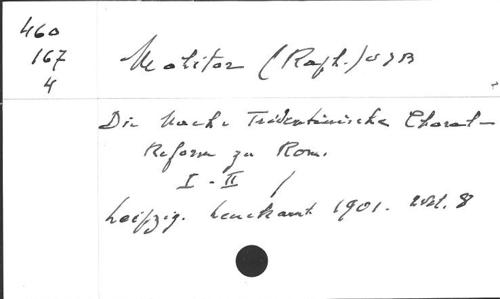 460
167
4
Molitor (Raph.) OSB
Die Nach-Tridentinische Choral-
Reform zu Rom.
I - II /
Leipzig. Leuckart 1901. 2 vol. 8